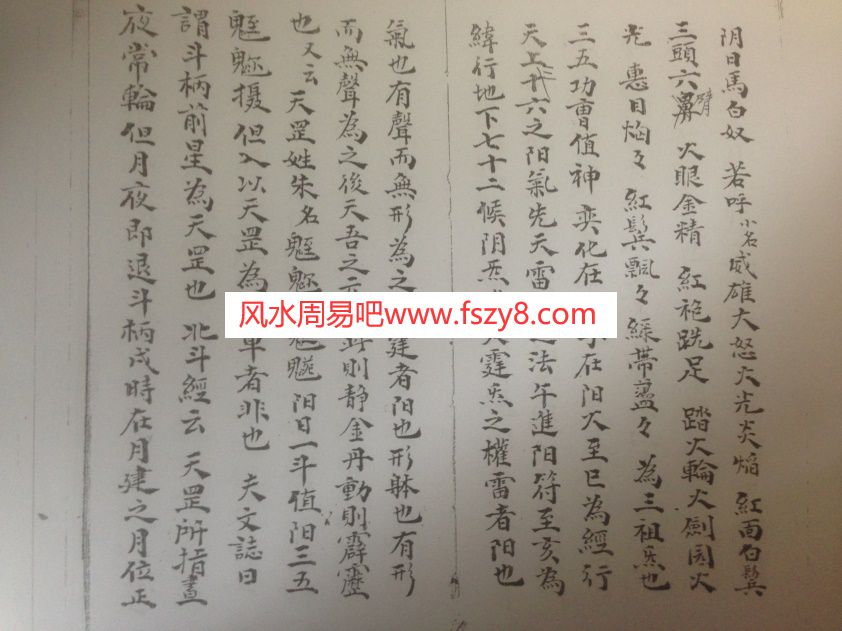 阴日馬白奴 若呼小名 威雄大怒火光炎焰 紅面白鬂
三頭六臂 火眼金精 紅袍跣足 踏火輪火劍圆火
光 惠目焰々 紅鬂飄々 緑带盪々 為三祖炁也
三五功曺值神 奕化在 在阳火至巳為經行
天上 六之阳氣先天雷 法午進阳符至亥為
緯行地下七十二候阴炁 霆炁之權雷者阳也
氣也有聲而無形為之 霆者阳也形躰也有形
而無聲為之後天吾之 則静金丹動則霹靂
也又云天罡姓朱名魁 阳日一斗值阳三五
摄但入以天罡為 軍者非也 夫文誌曰
謂斗柄前星為天罡也 北斗經云 天罡所指晝
夜常輪但月夜即退斗柄戌時在月建之月位正
风水周易吧www.fszy8.com